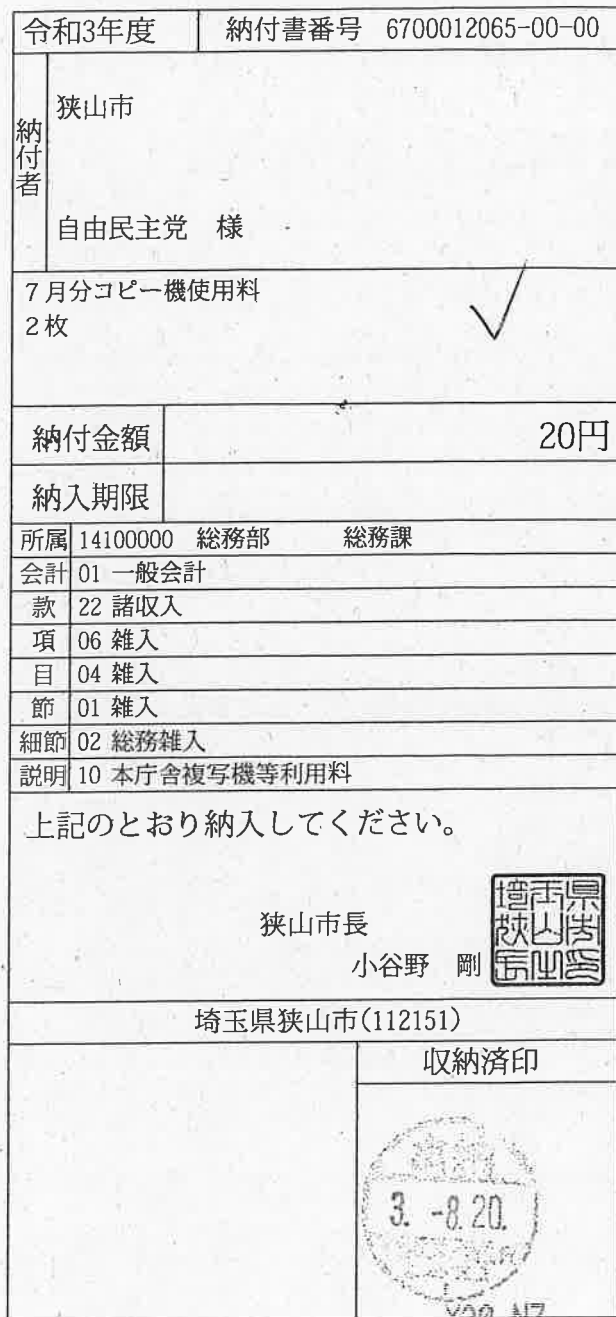 令和3年度 納付書番号 6700012065-00-00
納付者
狭山市
自由民主党 様
7月分コピー機使用料
2枚
納付金額 20円
納入期限
所属 14100000 総務部 総務課
会計 01 一般会計
款 22 諸収入
項 06 雑入
目 04 雑入
節 01 雑入
細節 02 総務雑入
説明 10 本庁舎複写機等利用料
上記のとおり納入してください。
狭山市長
小谷野 剛
埼玉県狭山市(112151)
収納済印
3. -8.20.